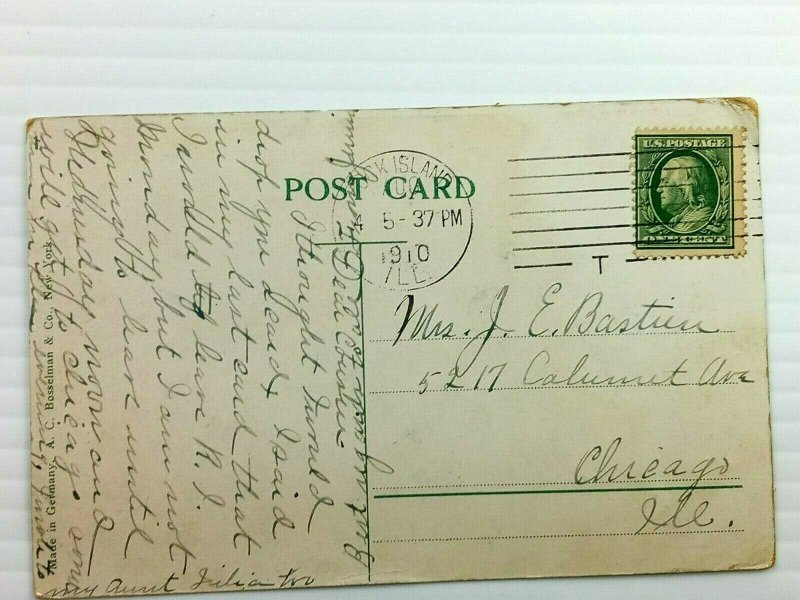 POST CARD
U.S. POSTAGE
ONE CENT
ROCK ISLAND
5-37 PM
1910
ILL.
T
Mrs. J. E. Bastien
5217 Calumet Ave
Chicago
Ill.
Dear Cousin
I thought I would
drop you a card I said
in my last card that
I would leave R. I.
Monday but I am not
going to leave until
Wednesday noon and
will get to Chicago
in the evening
my Aunt Julia
Made in Germany, A. C. Bosselman & Co., New York.